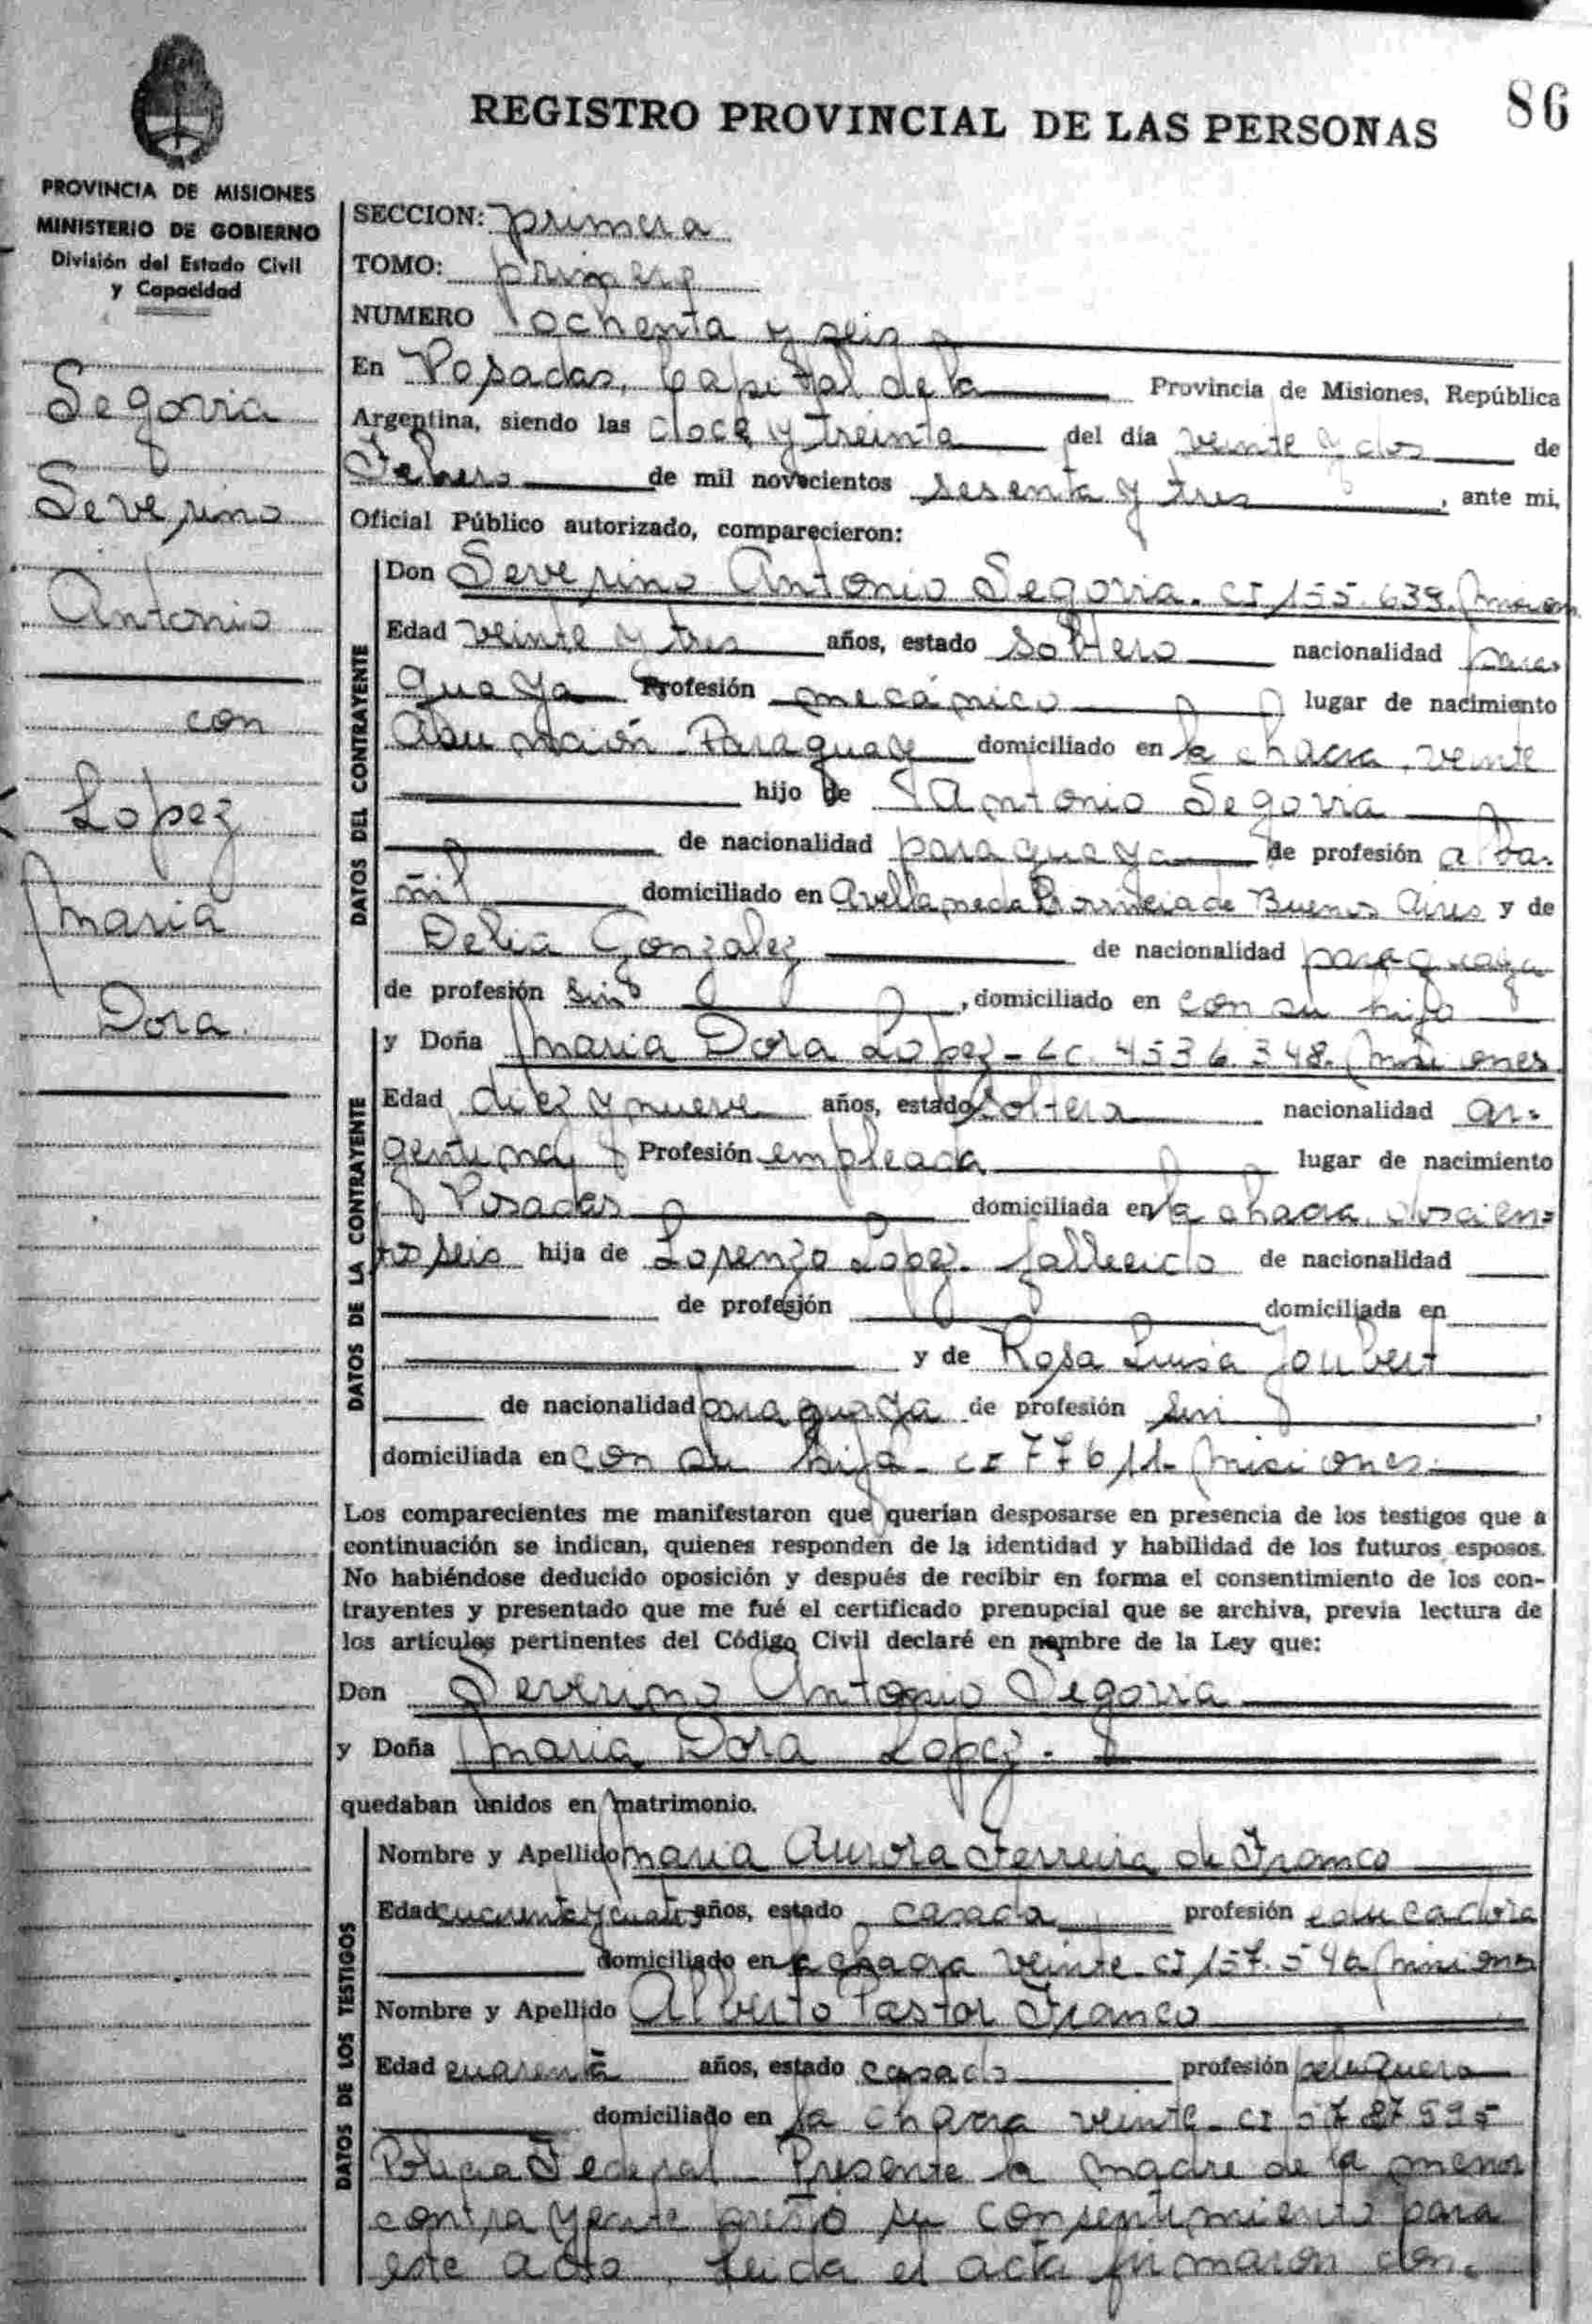 86
REGISTRO PROVINCIAL DE LAS PERSONAS
PROVINCIA DE MISIONES
MINISTERIO DE GOBIERNO
División del Estado Civil
y Capacidad
Segovia
Severino
Antonio
con
Lopez
Maria
Dora.
SECCION: primera
TOMO: primero
NUMERO ochenta y seis
En Posadas, Capital de la Provincia de Misiones, República
Argentina, siendo las doce y treinta del día veinte y dos de
Febrero de mil novecientos sesenta y tres, ante mi,
Oficial Público autorizado, comparecieron:
DATOS DEL CONTRAYENTE
Don Severino Antonio Segovia. CI 155.639. Misiones
Edad veinte y tres años, estado soltero nacionalidad para-
guaya Profesión mecánico lugar de nacimiento
Asunción Paraguay domiciliado en la chacra veinte
hijo de Antonio Segovia
de nacionalidad paraguaya de profesión alba-
ñil domiciliado en Avellaneda Provincia de Buenos Aires y de
Delia Gonzalez de nacionalidad paraguaya
de profesión sin, domiciliado en con su hijo
DATOS DE LA CONTRAYENTE
y Doña Maria Dora Lopez - LC. 4536.348. Misiones
Edad diez y nueve años, estado soltera nacionalidad ar-
gentina Profesión empleada lugar de nacimiento
Posadas domiciliada en la chacra doscien-
tos seis hija de Lorenzo Lopez. fallecido de nacionalidad
de profesión domiciliada en
y de Rosa Luisa Joubert
de nacionalidad paraguaya de profesión sin,
domiciliada en con su hija - CI 77611- Misiones.
Los comparecientes me manifestaron que querían desposarse en presencia de los testigos que a
continuación se indican, quienes responden de la identidad y habilidad de los futuros esposos.
No habiéndose deducido oposición y después de recibir en forma el consentimiento de los con-
trayentes y presentado que me fué el certificado prenupcial que se archiva, previa lectura de
los articulos pertinentes del Código Civil declaré en nombre de la Ley que:
Don Severino Antonio Segovia
y Doña Maria Dora Lopez.
quedaban unidos en matrimonio.
DATOS DE LOS TESTIGOS
Nombre y Apellido Maria Aurora Ferreira de Franco
Edad cuarenta y cuatro años, estado casada profesión educadora
domiciliado en la chacra veinte. CI 157.546 Misiones
Nombre y Apellido Alberto Pastor Franco
Edad cuarenta años, estado casado profesión peluquero
domiciliado en la chacra veinte - CI 5787595
Policia Federal. Presente la madre de la menor
contrayente prestó su consentimiento para
este acto. Leida el acta firmaron con-